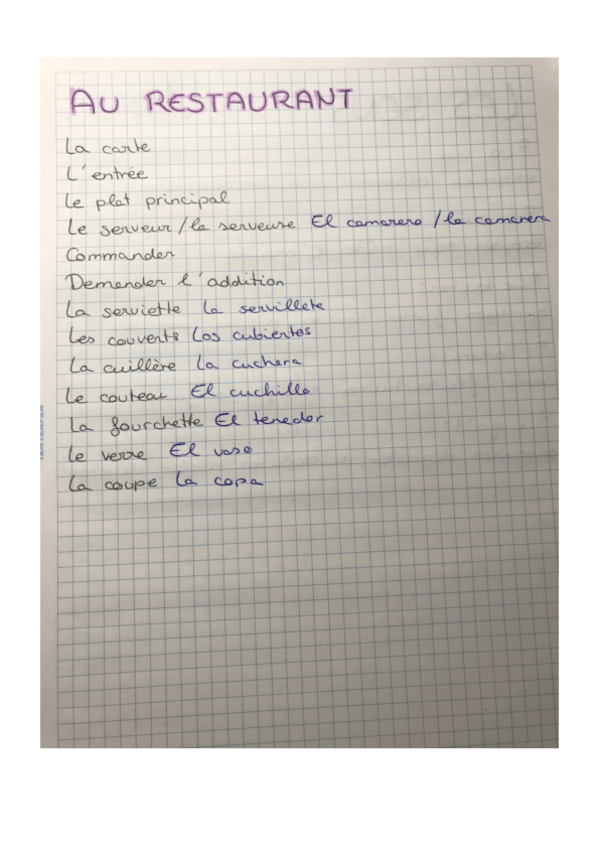 AU RESTAURANT
La carte
L'entrée
Le plat principal
Le serveur/la serveuse El camarero/la camarera
Commander
Demander l'addition
La serviette La servilleta
Les couverts Los cubiertos
La cuillère La cuchara
Le couteau El cuchillo
La fourchette El tenedor
Le verre El vaso
La coupe La copa